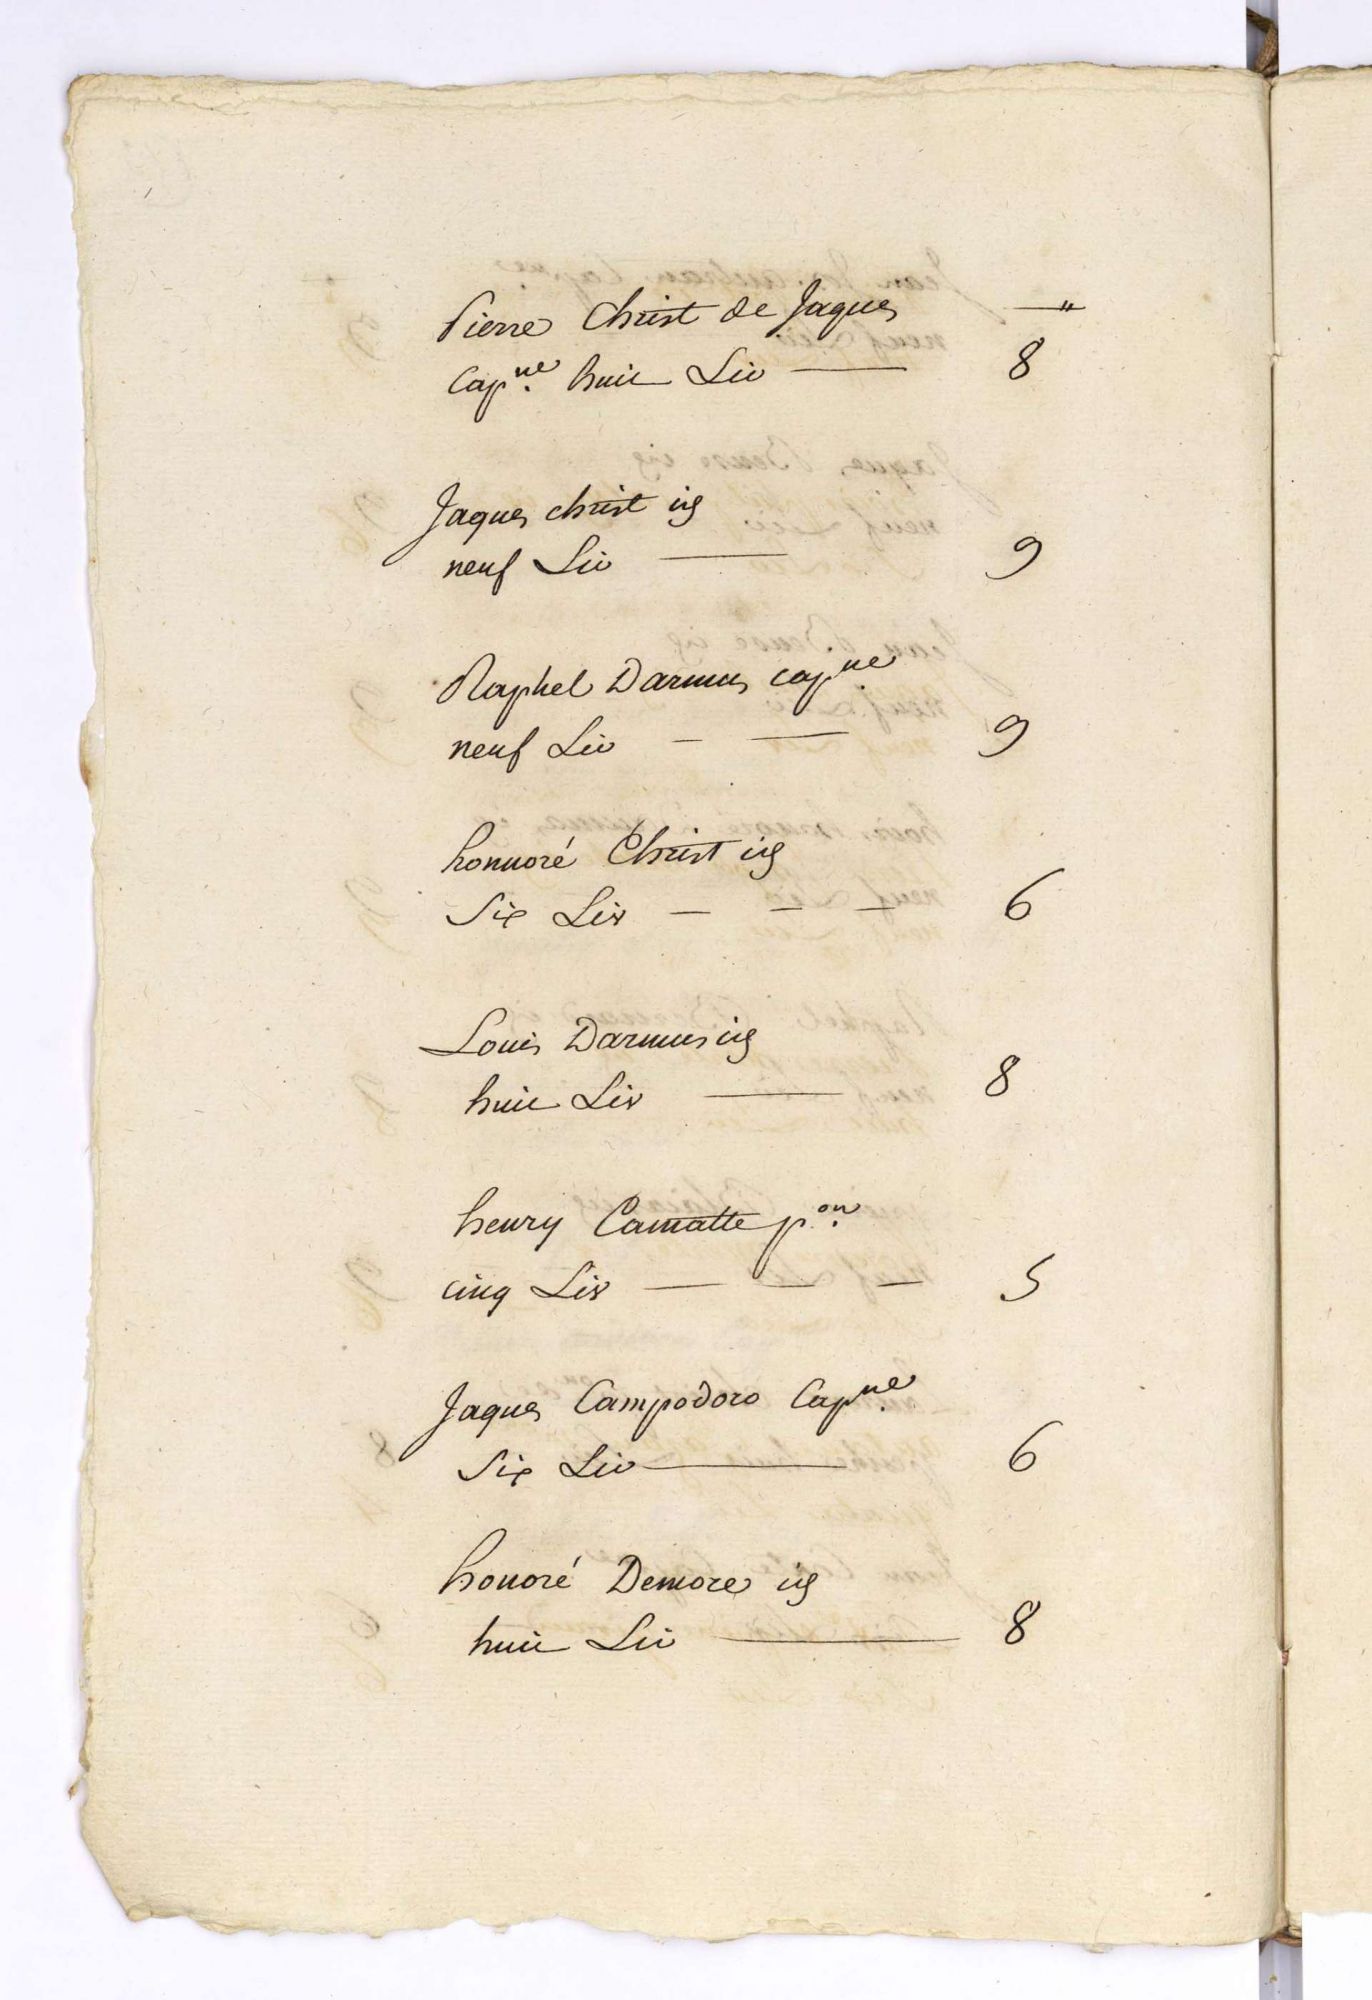 Pierre Christ de Jaques —"
Capne. huit Liv — 8
Jaques christ id
neuf Liv — 9
Raphel Darmus capne.
neuf Liv — — 9
honnoré Christ id
Six Liv — — — 6
Louis Darmus id
huit Liv — 8
henry Camatte pon.
cinq Liv — — — 5
Jaques Campodoro Capne.
Six Liv — 6
honoré Demore id
huit Liv — 8